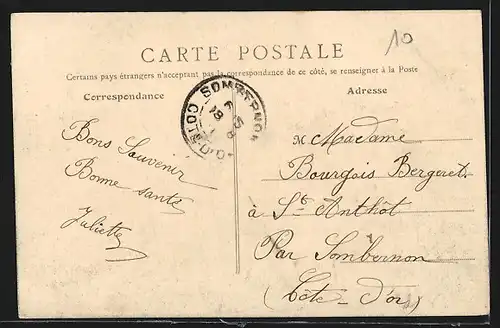 10
CARTE POSTALE
Certains pays étrangers n'acceptant pas la correspondance de ce côté, se renseigner à la Poste
Correspondance
Adresse
SOMBERNON
COTE-D'OR
Bons Souvenir
Bonne santé
Juliette
M Madame
Bourgois Bergeret
à St Anthôt
Par Sombernon
(Côte-d'or)